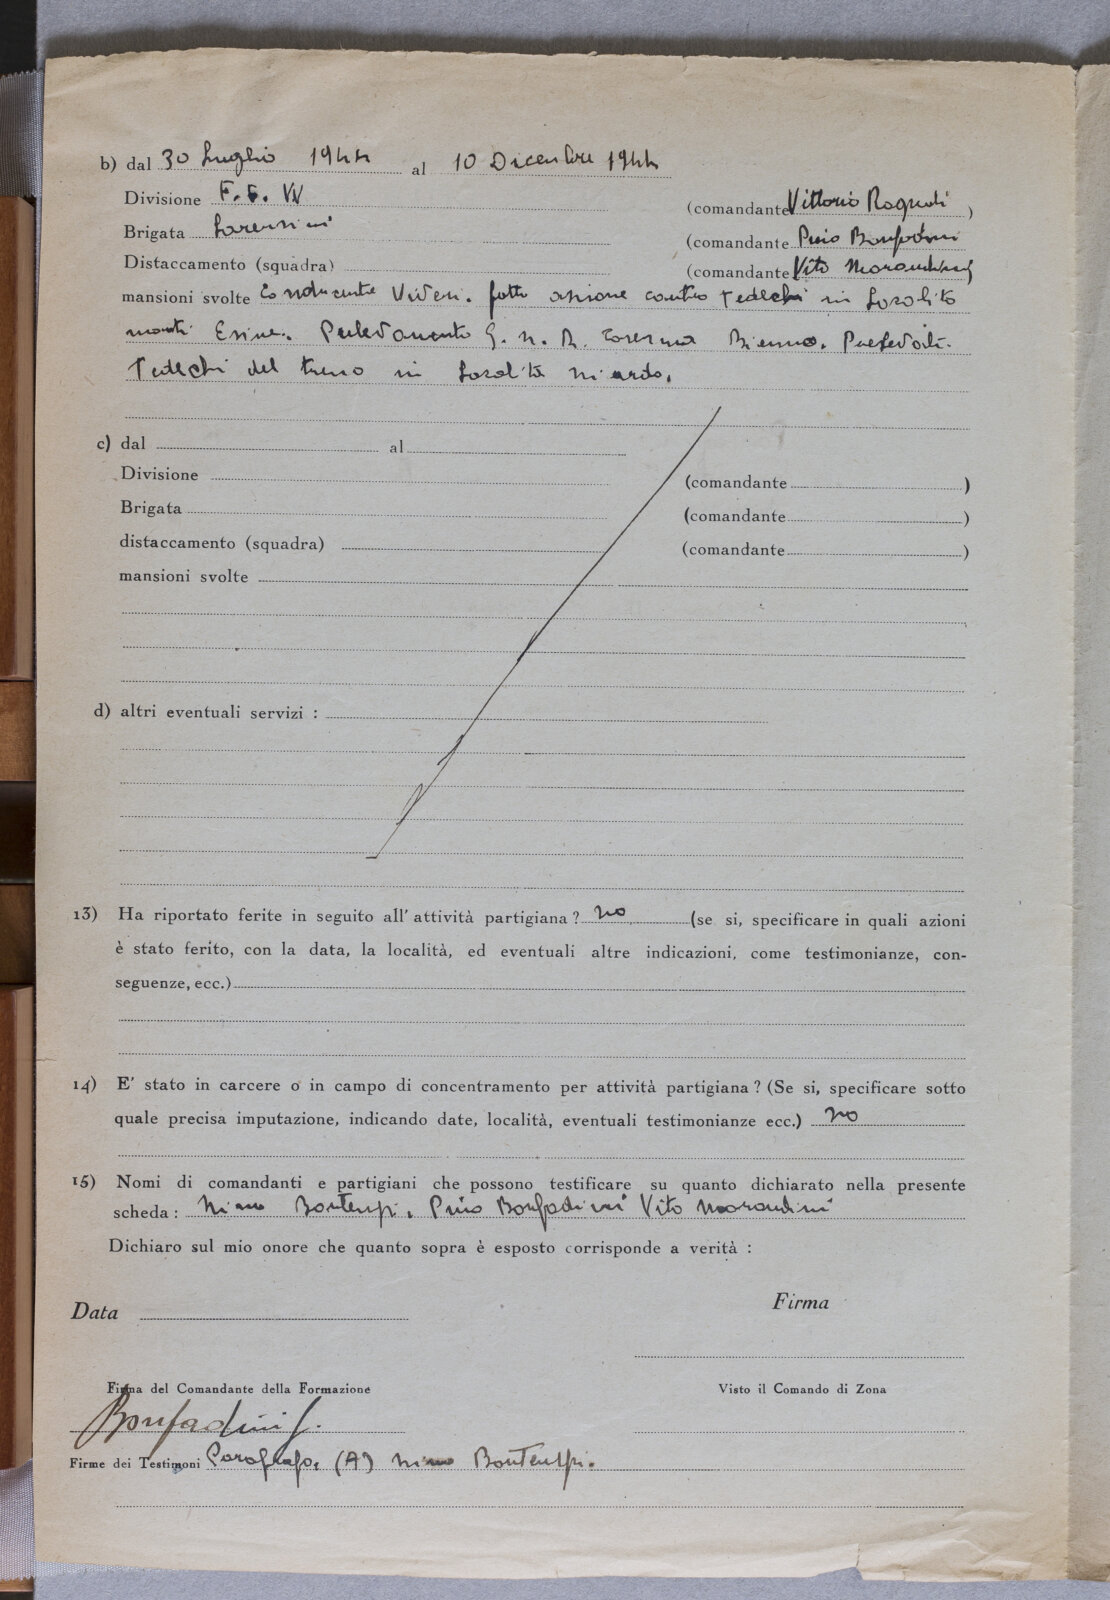 b) dal 30 Luglio 1944 al 10 Dicembre 1944
Divisione F. F. VV (comandante Vittorio Ragnoli )
Brigata Lorenzini (comandante Pino Bonfadini
Distaccamento (squadra) (comandante Vito Morandini)
mansioni svolte Conducente Viveri. fatto azione contro Tedeschi in Località
monti Esine. Prelevamento G. N. R. Caserma Bienno.
Tedeschi del treno in Località Niardo.
c) dal al
Divisione (comandante )
Brigata (comandante )
distaccamento (squadra) (comandante )
mansioni svolte
d) altri eventuali servizi :
13) Ha riportato ferite in seguito all' attività partigiana ? no (se si, specificare in quali azioni
è stato ferito, con la data, la località, ed eventuali altre indicazioni, come testimonianze, con-
seguenze, ecc.)
14) E' stato in carcere o in campo di concentramento per attività partigiana ? (Se si, specificare sotto
quale precisa imputazione, indicando date, località, eventuali testimonianze ecc.) no
15) Nomi di comandanti e partigiani che possono testificare su quanto dichiarato nella presente
scheda : Nino Bontempi. Pino Bonfadini Vito Morandini
Dichiaro sul mio onore che quanto sopra è esposto corrisponde a verità :
Data Firma
Firma del Comandante della Formazione Visto il Comando di Zona
Bonfadini G.
Firme dei Testimoni Paragrafo. (A) Nino Bontempi.